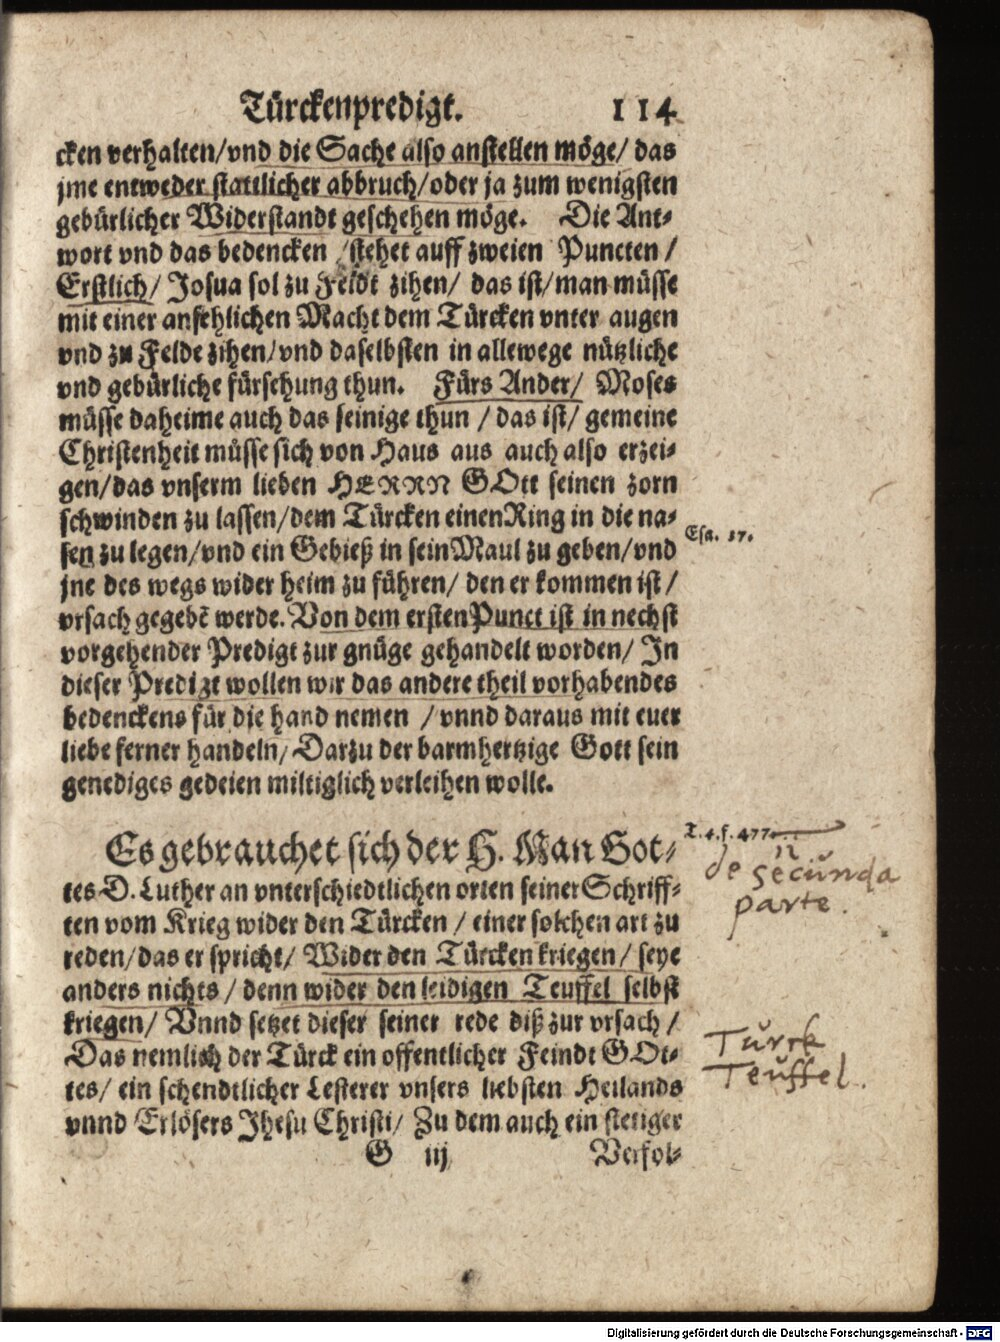 Türckenpredigt. 114
cken verhalten/vnd die Sache also anstellen möge/ das
jme entweder stattlicher abbruch/oder ja zum wenigsten
gebürlicher Widerstandt geschehen möge. Die Ant-
wort vnd das bedencken /stehet auff zweien Puncten /
Erstlich/ Josua sol zu Feldt zihen/ das ist/man müsse
mit einer ansehlichen Macht dem Türcken vnter augen
vnd zu Felde zihen/vnd daselbsten in allewege nützliche
vnd gebürliche fürsehung thun. Fürs Ander/ Moses
müsse daheime auch das seinige thun / das ist/ gemeine
Christenheit müsse sich von Haus aus auch also erzei-
gen/das vnserm lieben HERRN GOtt seinen zorn
schwinden zu lassen/dem Türcken einen Ring in die na-
sen zu legen/vnd ein Gebieß in sein Maul zu geben/vnd
Esa. 37.
jne des wegs wider heim zu führen/ den er kommen ist/
vrsach gegebē werde. Von dem ersten Punct ist in nechst
vorgehender Predigt zur gnüge gehandelt worden/ In
dieser Predigt wollen wir das andere theil vorhabendes
bedenckens für die hand nemen /vnnd daraus mit euer
liebe ferner handeln/ Darzu der barmhertzige Gott sein
genediges gedeien miltiglich verleihen wolle.
Es gebrauchet sich der H. Man Got-
T. 4. f. 477.
de secunda
parte.
tes D. Luther an vnterschiedtlichen orten seiner Schriff-
ten vom Krieg wider den Türcken / einer solchen art zu
reden/das er spricht/ Wider den Türcken kriegen / seye
anders nichts / denn wider den leidigen Teuffel selbst
kriegen/ Vnnd setzet dieser seiner rede diß zur vrsach /
Türck
Teuffel.
Das nemlich der Türck ein offentlicher Feindt GOt-
tes/ ein schendtlicher Lesterer vnsers liebsten Heilands
vnnd Erlösers Jhesu Christi/ Zu dem auch ein stetiger
G iij Verfol-
Digitalisierung gefördert durch die Deutsche Forschungsgemeinschaft - DFG